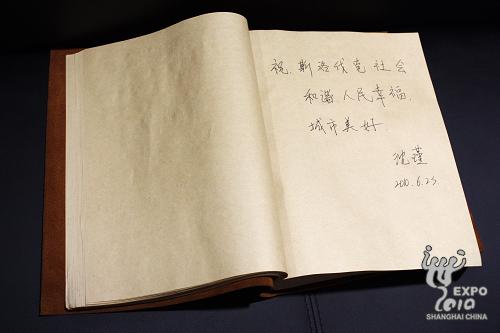 祝.斯洛伐克社会
和谐.人民幸福.
城市美好.
沈瑾
2010.6.23.
EXPO
2010
SHANGHAI CHINA